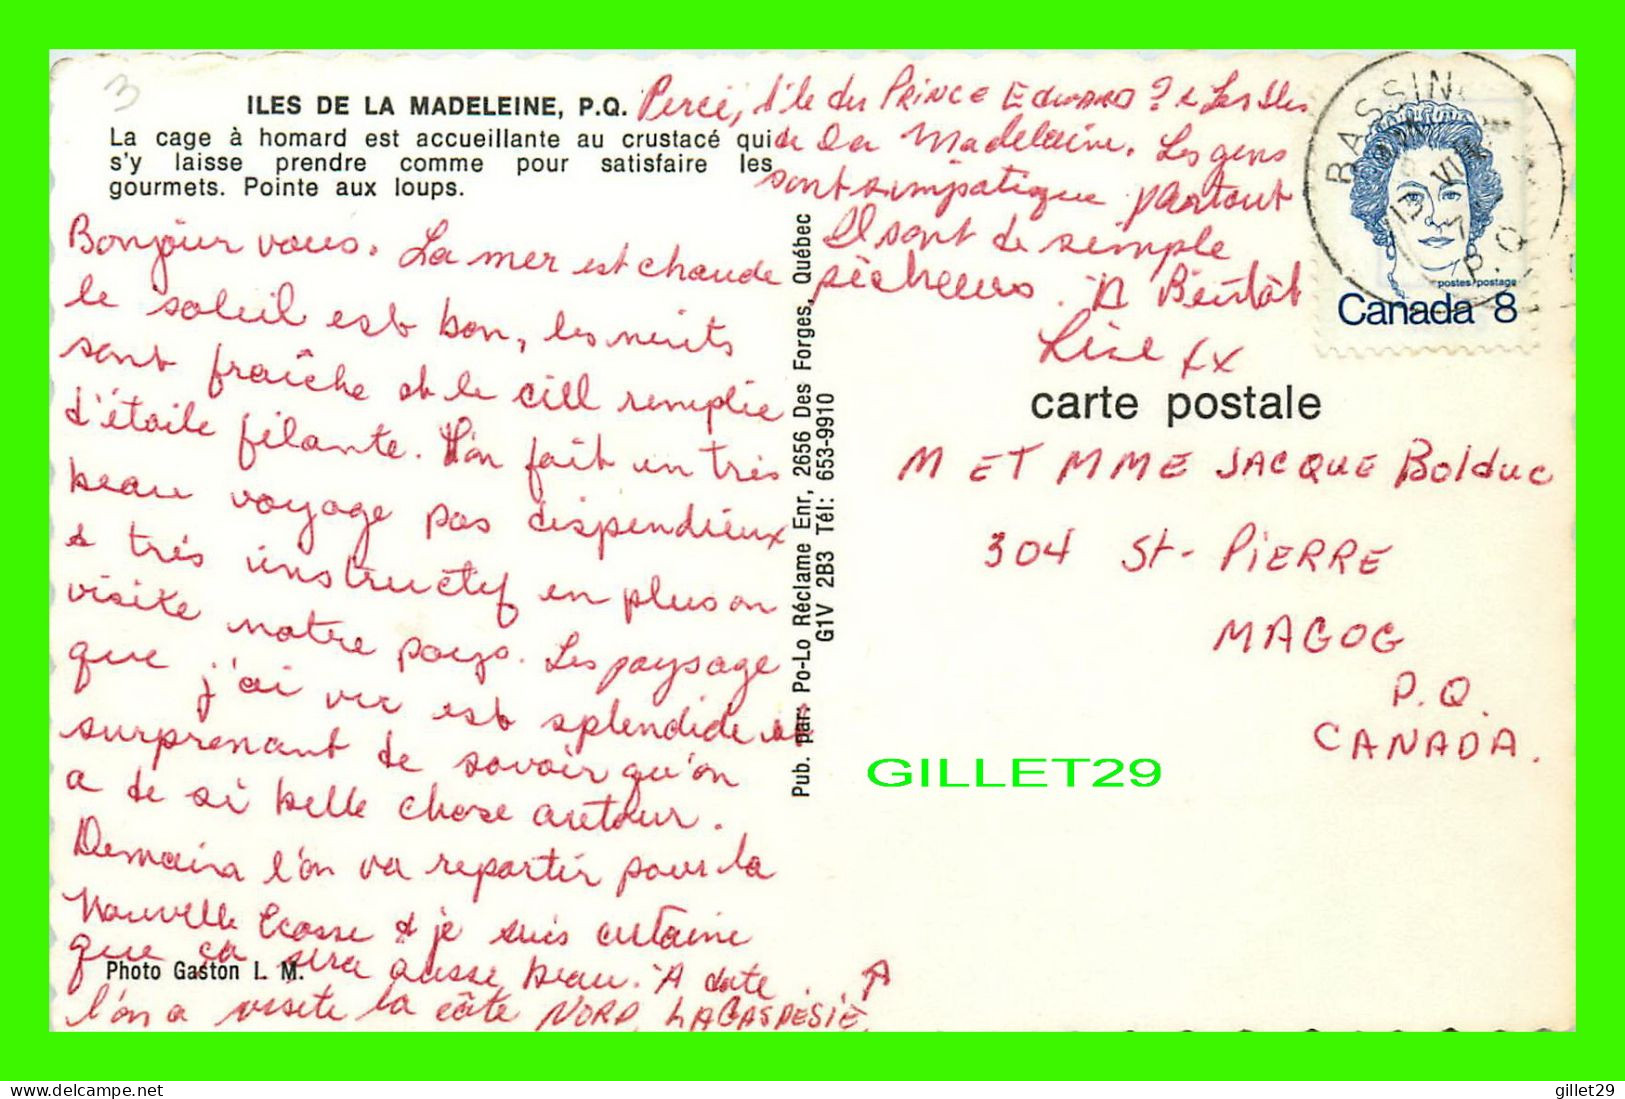 3
ILES DE LA MADELEINE, P.Q.
La cage à homard est accueillante au crustacé qui
s'y laisse prendre comme pour satisfaire les
gourmets. Pointe aux loups.
Bonjour vous. La mer est chaude
le soleil est bon, les nuits
sont fraîche et le ciel remplie
d'étoile filante. L'on fait un très
beau voyage pas dispendieux
& très instructif en plus on
visite notre pays. Les paysage
que j'ai vu est splendide
surprenant de savoir qu'on
a de si belle chose autour.
Demain l'on va repartir pour la
Nouvelle Ecosse & je suis certaine
que ça sera aussi beau. A date
l'on a visite la côte NORD, LA GASPESIE,
Photo Gaston L. M.
Percé, l'ile du PRINCE EDWARD & Les Iles
de La Madelaine. Les gens
sont simpatique partout
Il sont de simple
pêcheurs. A Bientôt
Lise xx
Pub. par: Po-Lo Réclame Enr, 2656 Des Forges, Québec
G1V 2B3 Tél: 653-9910
BASSIN
13 VII
P.Q.
postes/postage
Canada 8
carte postale
M ET MME JACQUE Bolduc
304 St-PiERRE
MAGOG
P.Q.
CANADA.
GILLET29
delcampe.net
gillet29